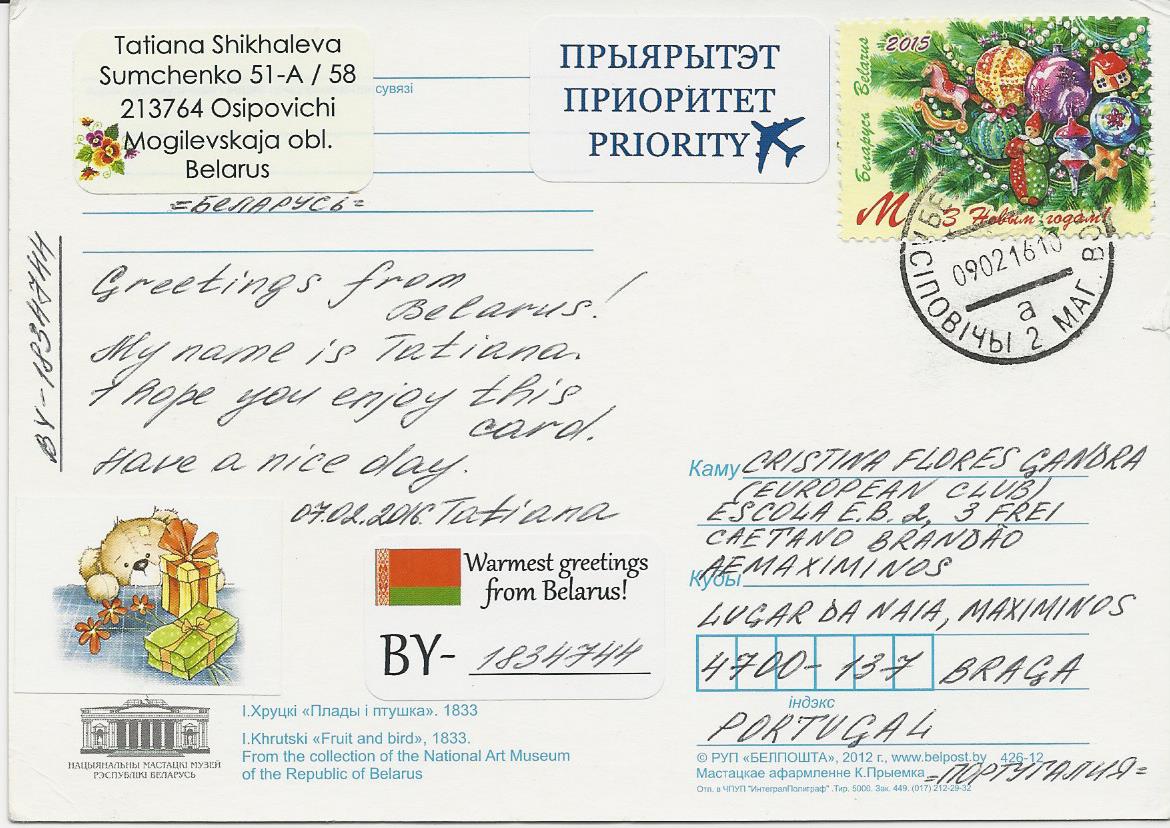 Tatiana Shikhaleva
Sumchenko 51-A / 58
213764 Osipovichi
Mogilevskaja obl.
Belarus
сувязі
=БЕЛАРУСЬ=
ПРЫЯРЫТЭТ
ПРИОРИТЕТ
PRIORITY
Беларусь Belarus
2015
М З Новым годам!
090216 10
а
СІПОВІЧЫ 2 МАГ. ВО
BY-1834744
Greetings from
Belarus!
My name is Tatiana.
I hope you enjoy this
card.
Have a nice day.
07.02.2016. Tatiana
Warmest greetings
from Belarus!
BY- 1834744
Каму CRISTINA FLORES GANDRA
(EUROPEAN CLUB)
ESCOLA E.B. 2, 3 FREI
CAETANO BRANDÃO
Куды AEMAXIMINOS
LUGAR DA NAIA, MAXIMINOS
4700-137 BRAGA
індэкс
PORTUGAL
=ПОРТУГАЛИЯ=
НАЦЫЯНАЛЬНЫ МАСТАЦКІ МУЗЕЙ
РЭСПУБЛІКІ БЕЛАРУСЬ
І.Хруцкі «Плады і птушка». 1833
I.Khrutski «Fruit and bird», 1833.
From the collection of the National Art Museum
of the Republic of Belarus
© РУП «БЕЛПОШТА», 2012 г., www.belpost.by 426-12
Мастацкае афармленне К.Прыемка
Отп. в ЧПУП "ИнтегралПолиграф".Тир. 5000. Зак. 449. (017) 212-29-32